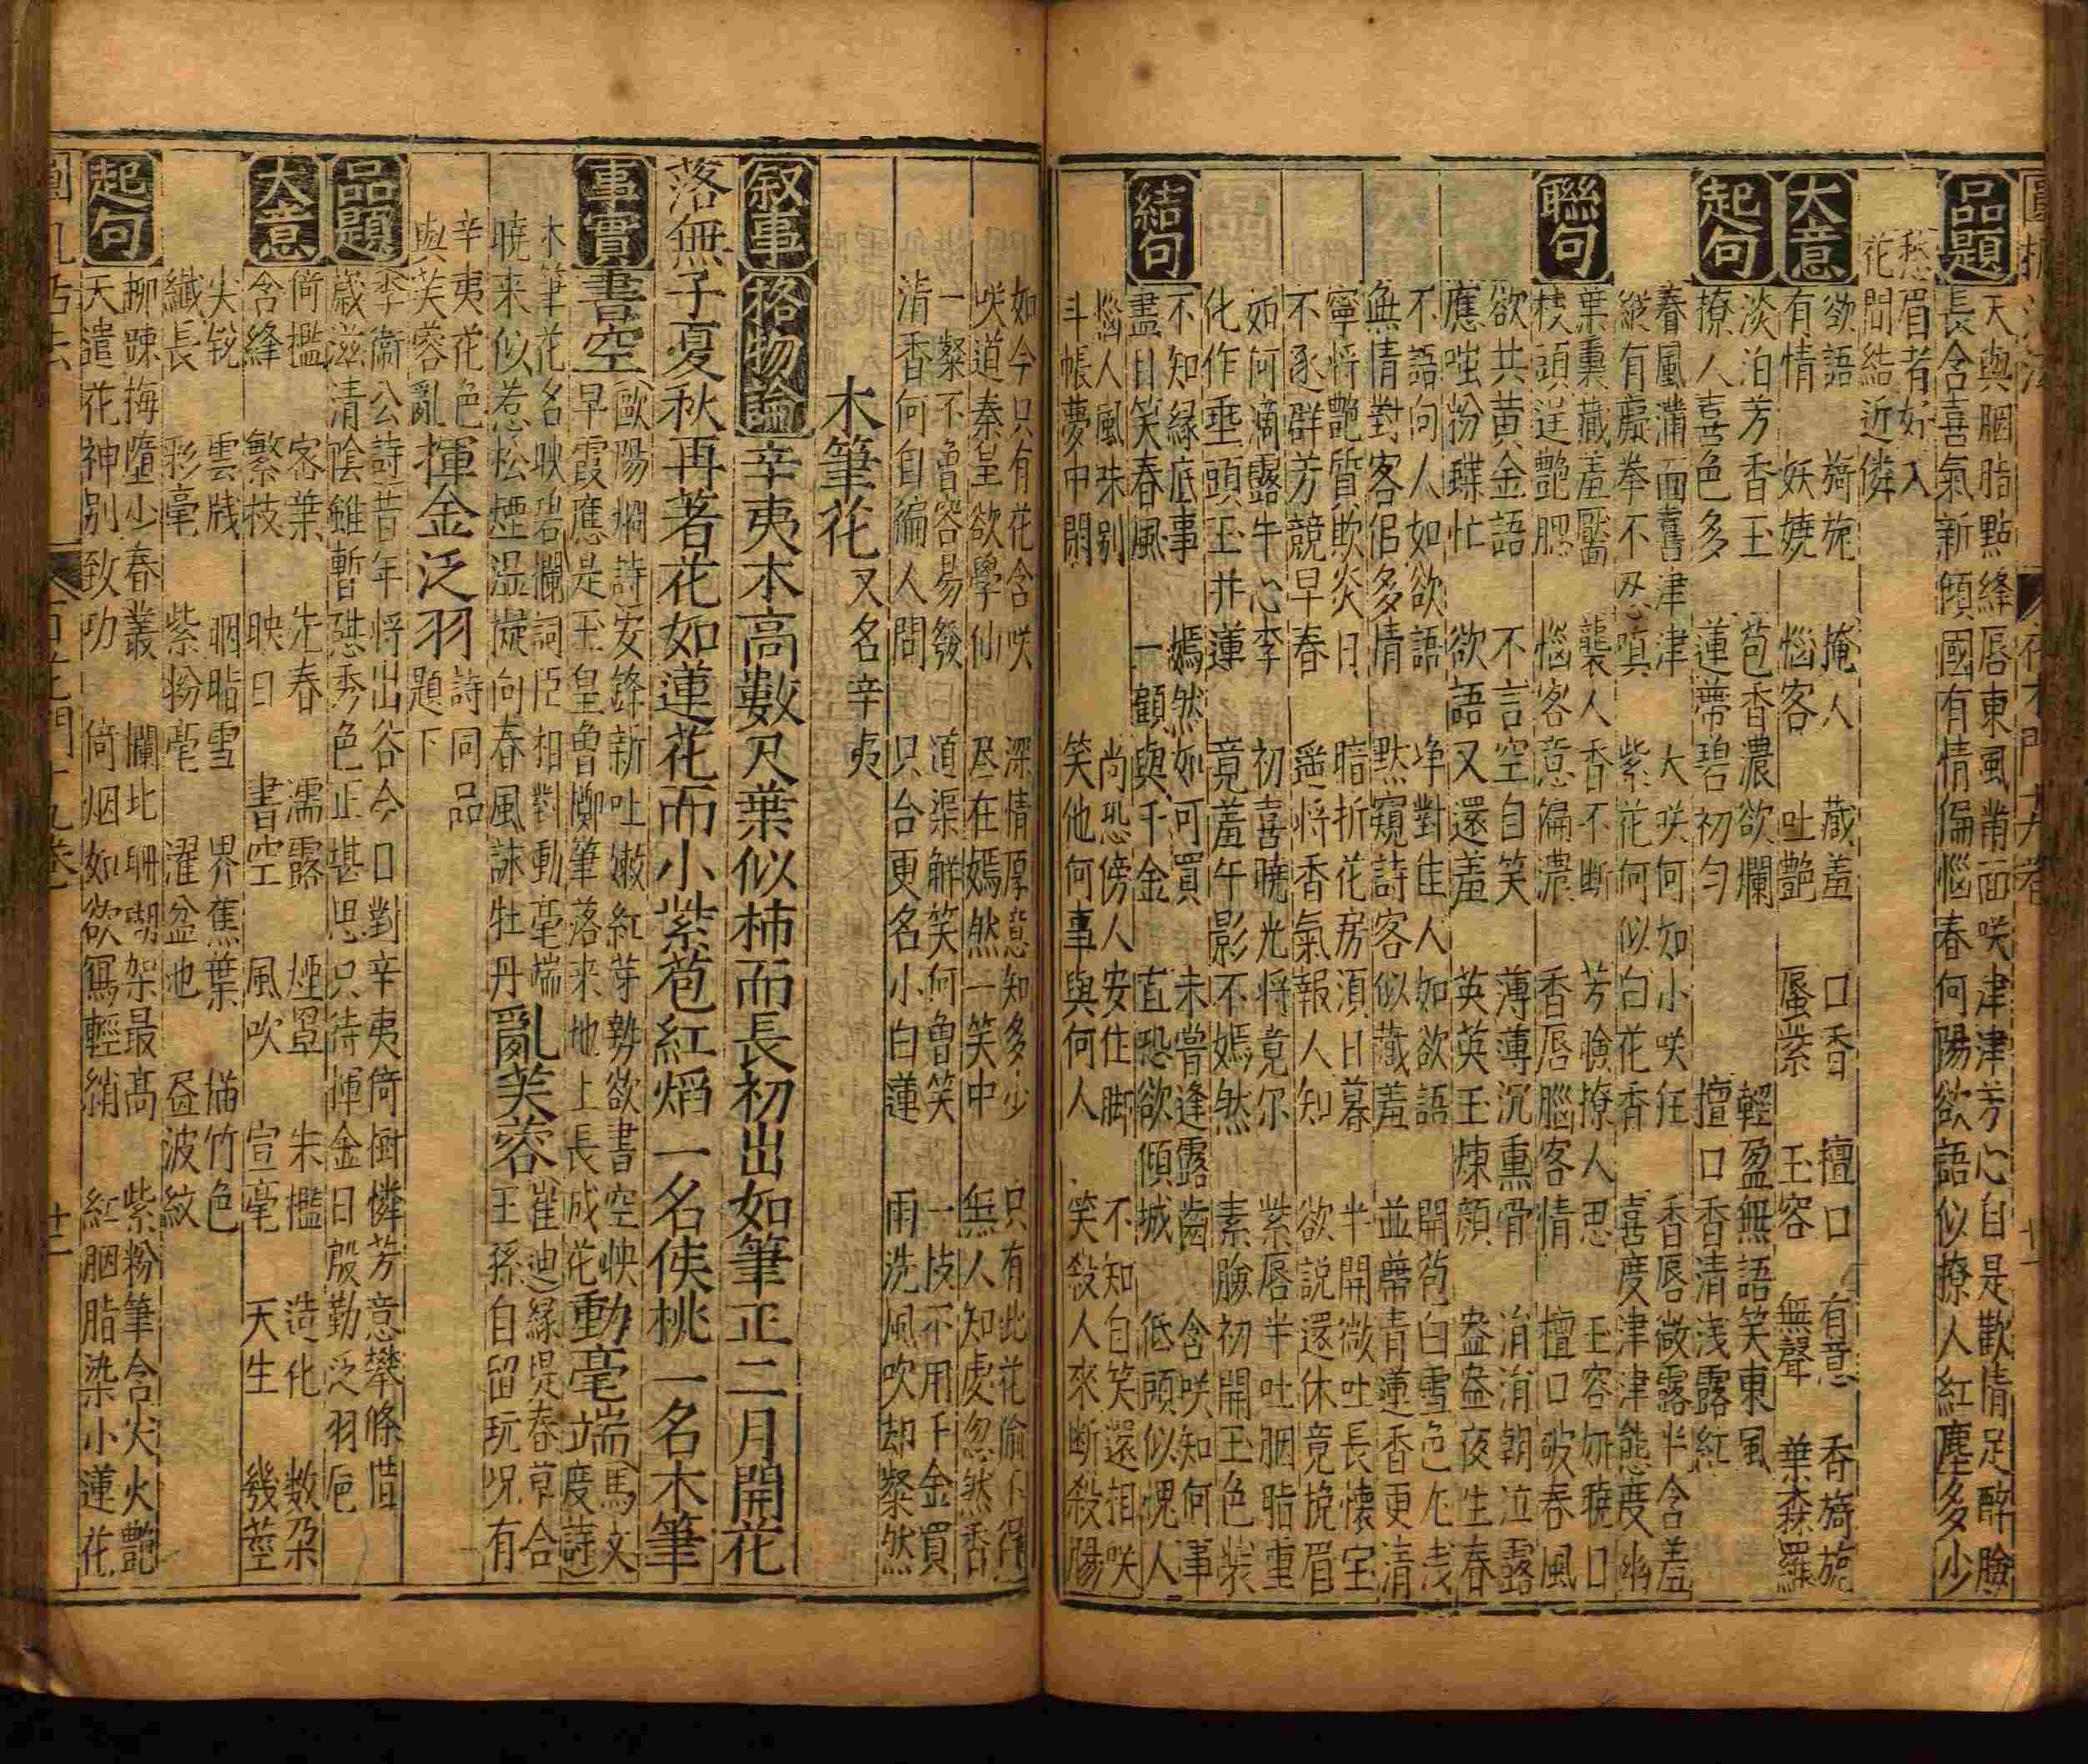 品題
天與胭脂點絳唇東風滿面咲津津芳心自是歡情足醉臉
長含喜氣新傾國有情偏惱春何陽欲語似撩人紅塵多少
愁眉者好入
花間結近憐
大意
欲語 旖旎 掩人 藏羞 口香 檀口 有意 香旖旎
有情 妖嬈 惱客 吐艷 蜃紫 玉容 無聲 葉森羅
起句
淡泊芳香玉 苞香濃欲爛 輕盈無語笑東風
撩人喜色多 蓮蒂碧初勻 檀口香清淺露紅
春風滿面喜津津 大咲何如小咲狂 香唇微露半含羞
縱有癡拳不忍嗔 紫花何似白花香 喜度津津態度幽
聯句
葉裏藏羞靨 襲人香不斷 芳臉撩人思 玉容妍曉口
枝頭逞艷腮 惱客意偏濃 香唇惱客情 檀口破春風
欲共黃金語 不言空自笑 薄薄沉熏骨 涓涓朝泣露
應嗤粉蝶忙 欲語又還羞 英英玉煉顏 盎盎夜生春
不語向人如欲語 爭對佳人如欲語 開苞白雪色尤淺
無情對客侶多情 黙窺詩客似藏羞 並蒂青蓮香更清
寧將艷質欺炎日 暗折花房須日暮 半開微吐長懷寶
不逐群芳競早春 遥將香氣報人知 欲説還休竟挽眉
如何滴露牛心李 初喜曉光將竟尔 紫唇半吐胭脂重
化作垂頭玉井蓮 竟羞午影不嫣然 素臉初開玉色裝
結句
不知緣底事 嫣然如可買 未曾逢露齒 含咲知何事
盡日笑春風 一顧與千金 直恐欲傾城 低頭似愧人
惱人風味别 尚恐傍人安住脚 不知自笑還相咲
斗帳夢中閑 笑他何事與何人 笑殺人來斷殺陽
如今只有花含咲 深情厚意知多少 只有此花偷不得
咲道秦皇欲學仙 尽在嫣然一笑中 無人知處忽然香
一粲不曾容易發 道渠解笑何曾笑 一枝不用千金買
清香何自徧人間 只台更名小白蓮 雨洗風吹却粲然
木筆花又名辛夷
叙事
格物論辛夷木高數尺葉似柿而長初出如筆正二月開花
落無子夏秋再著花如蓮花而小紫苞紅熖一名侯桃一名木筆
事實
書空歐陽炯詩安鋒新吐嫩紅芽勢欲書空映
早霞應是玉皇曾擲筆落来地上長成花動毫端馬文度詩
木筆花名映碧欄詞臣相對動毫端
曉来似惹松煙濕從向春風詠牡丹亂芙蓉崔迪緑堤春草合
王孫自留玩况有
辛夷花色
與芙蓉亂揮金泛羽詩同品
題下
品題
李衛公詩昔年將出谷今日對辛夷倚樹憐芳意攀條惜
歳滋清陰雖暫憩秀色正堪思只待揮金日殷勤泛羽卮
大意
倚檻 密葉 先春 濡露 煙罩 朱檻 造化 数朶
含絳 繁枝 映日 書空 風吹 宣毫 天生 幾莖
尖鋭 雲牋 胭脂雪 界蕉葉 描竹色
纖長 彩毫 紫粉毫 濯盆池 昼波紋
起句
柳踈梅墮少春叢 欄北珊瑚架最高 紫粉筆含尖火艷
天遣花神别致功 倚烟如欲寫輕綃 紅胭脂染小蓮花